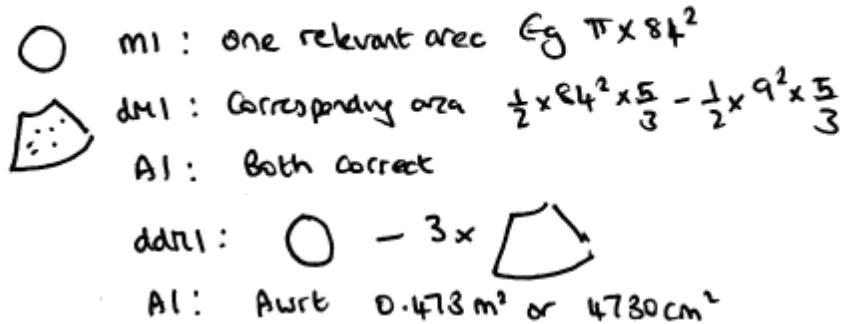 M1 : One relevant area Eg π × 84²
dM1 : Corresponding area ½ × 84² × 5/3 - ½ × 9² × 5/3
A1 : Both correct
ddM1 : - 3 ×
A1 : Awrt 0.473 m² or 4730 cm²